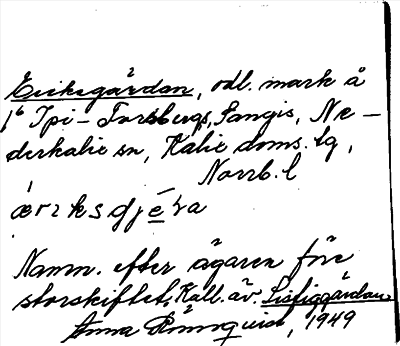 Eriksgårdan, odl. mark å
1⁶ Ipi-Forsbergs, Sangis, Ne-
derkalix sn, Kalix doms. lg,
Norrb. l
æriksgjɛ́ɽa
Namn. efter ägaren före
storskiftet, Kall. äv. Lisliggårdan.
Anna Rönnquist, 1949